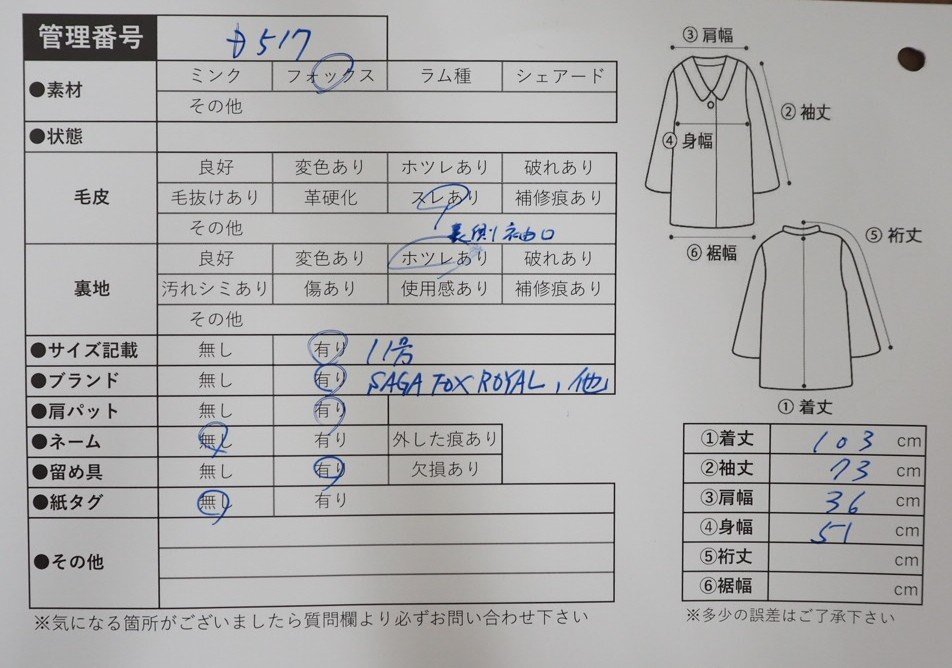 管理番号 D517
●素材 ミンク フォックス ラム種 シェアード
その他
●状態
毛皮 良好 変色あり ホツレあり 破れあり
毛抜けあり 革硬化 スレあり 補修痕あり
その他 裏側袖口
裏地 良好 変色あり ホツレあり 破れあり
汚れシミあり 傷あり 使用感あり 補修痕あり
その他
●サイズ記載 無し 有り 11号
●ブランド 無し 有り SAGA FOX ROYAL, 他
●肩パット 無し 有り
●ネーム 無し 有り 外した痕あり
●留め具 無し 有り 欠損あり
●紙タグ 無し 有り
●その他
※気になる箇所がございましたら質問欄より必ずお問い合わせ下さい
③肩幅
②袖丈
④身幅
⑤裄丈
⑥裾幅
①着丈
①着丈 103 cm
②袖丈 73 cm
③肩幅 36 cm
④身幅 51 cm
⑤裄丈 cm
⑥裾幅 cm
※多少の誤差はご了承下さい